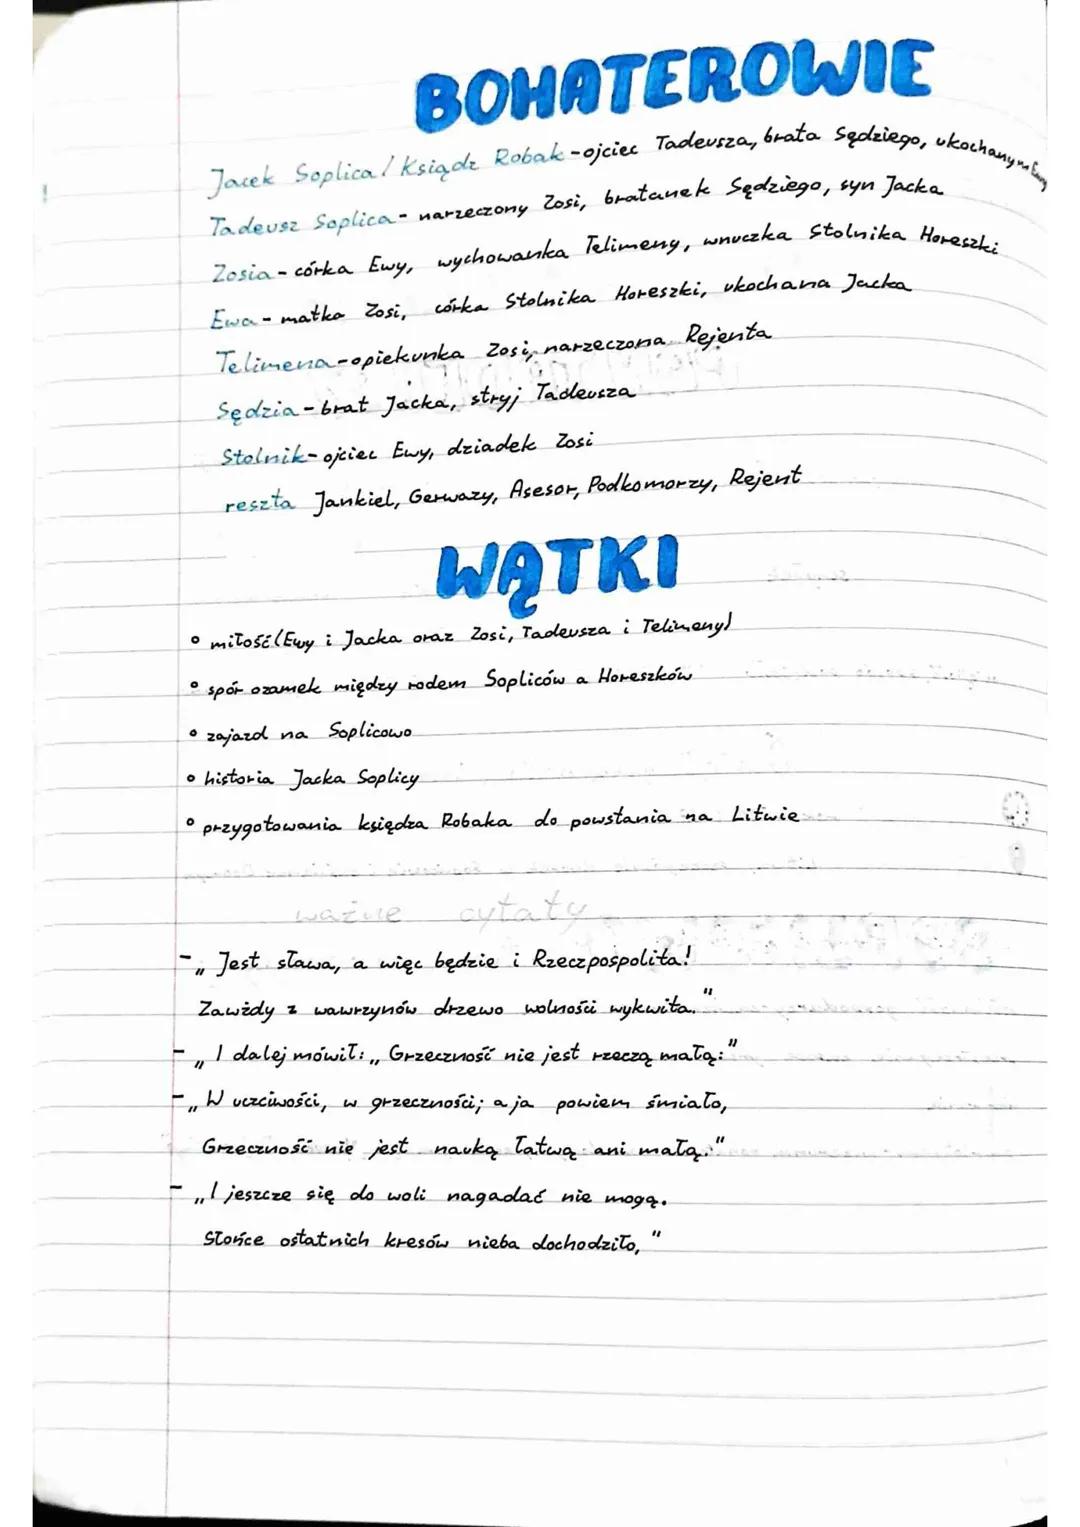 BOHATEROWIE
Jacek Soplica / Ksiądz Robak - ojciec Tadeusza, brata Sędziego, ukochany Ewy
Tadeusz Soplica - narzeczony Zosi, bratanek Sędziego, syn Jacka
Zosia - córka Ewy, wychowanka Telimeny, wnuczka Stolnika Horeszki
Ewa - matka Zosi, córka Stolnika Horeszki, ukochana Jacka
Telimena - opiekunka Zosi, narzeczona Rejenta
Sędzia - brat Jacka, stryj Tadeusza
Stolnik - ojciec Ewy, dziadek Zosi
reszta Jankiel, Gerwazy, Asesor, Podkomorzy, Rejent
WĄTKI
° miłość (Ewy i Jacka oraz Zosi, Tadeusza i Telimeny)
° spór o zamek między rodem Sopliców a Horeszków
° zajazd na Soplicowo
° historia Jacka Soplicy
° przygotowania księdza Robaka do powstania na Litwie
ważne cytaty
- „Jest sława, a więc będzie i Rzeczpospolita!
Zawżdy z wawrzynów drzewo wolności wykwita."
- „I dalej mówił: „Grzeczność nie jest rzeczą małą:"
- „W uczciwości, w grzeczności; a ja powiem śmiało,
Grzeczność nie jest nauką łatwą ani małą."
- „I jeszcze się do woli nagadać nie mogą.
Słońce ostatnich kresów nieba dochodziło,"